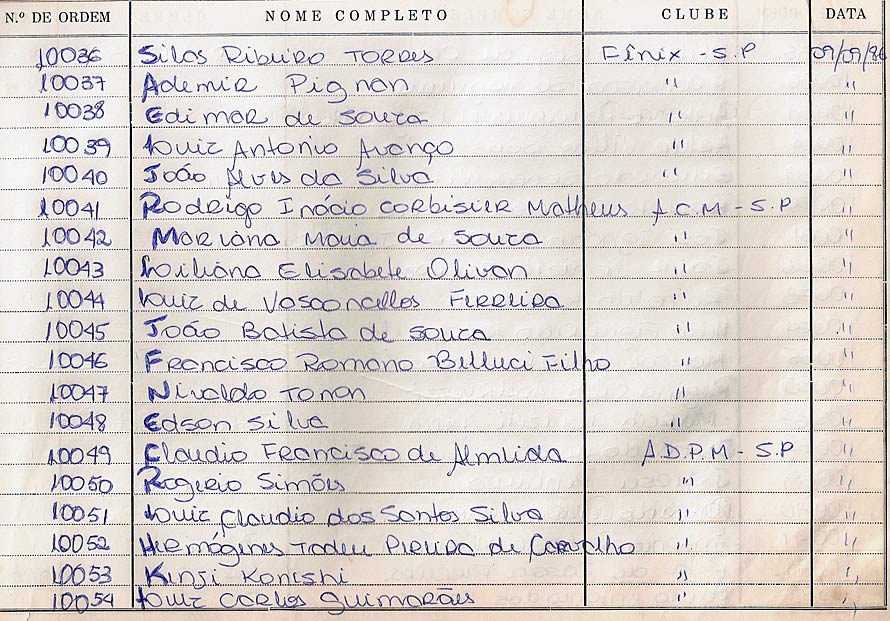 N.º DE ORDEM NOME COMPLETO CLUBE DATA
10036 Silas Ribeiro Torres Fênix - S.P 09/09/86
10037 Ademir Pignan " "
10038 Edimar de Souza " "
10039 Luiz Antonio Avanço " "
10040 João Alves da Silva " "
10041 Rodrigo Inácio Corbisier Matheus A.C.M - S.P "
10042 Mariana Maua de Souza " "
10043 Liliana Elisabete Olivan " "
10044 Luiz de Vasconcellos Ferreira " "
10045 João Batista de Souza " "
10046 Francisco Romano Belluci Filho " "
10047 Nivaldo Tonan " "
10048 Edson Silva " "
10049 Claudio Francisco de Almeida A.D.P.M - S.P "
10050 Rogerio Simões " "
10051 Luiz Claudio dos Santos Silva " "
10052 Hermógenes Tadeu Pereira de Carvalho " "
10053 Kinji Konishi " "
10054 Luiz Carlos Guimarães " "